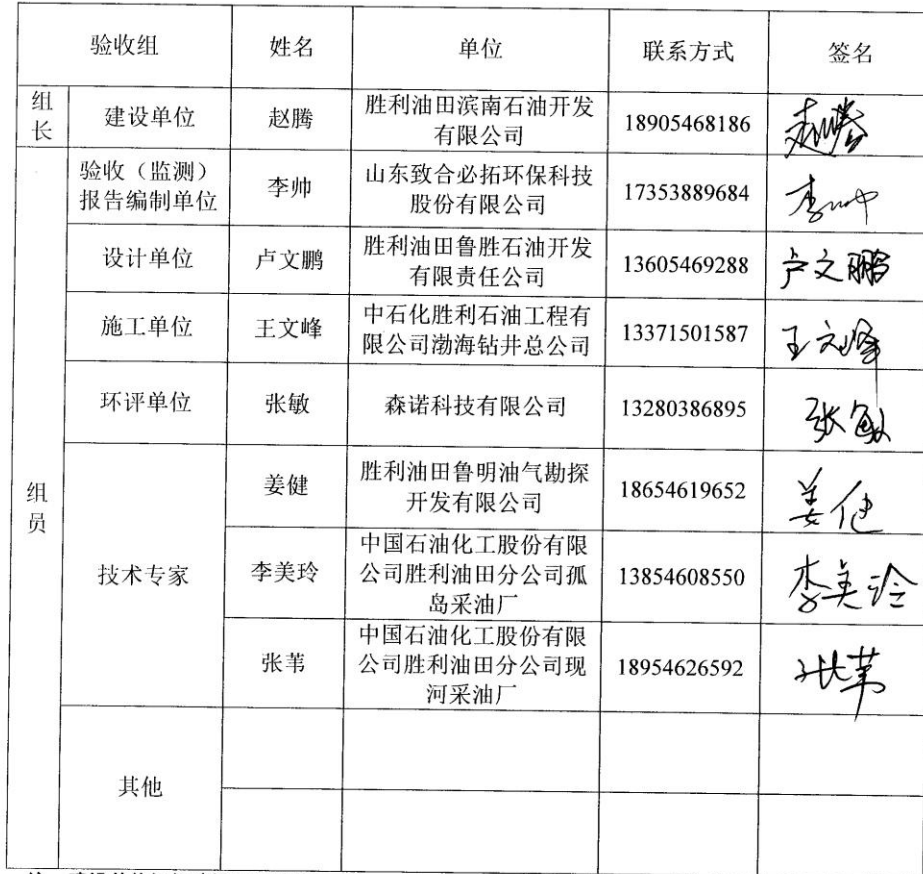 验收组 姓名 单位 联系方式 签名
组长 建设单位 赵腾 胜利油田滨南石油开发
有限公司 18905468186 赵腾
组员
验收（监测）
报告编制单位 李帅 山东致合必拓环保科技
股份有限公司 17353889684 李帅
设计单位 卢文鹏 胜利油田鲁胜石油开发
有限责任公司 13605469288 卢文鹏
施工单位 王文峰 中石化胜利石油工程有
限公司渤海钻井总公司 13371501587 王文峰
环评单位 张敏 森诺科技有限公司 13280386895 张敏
技术专家
姜健 胜利油田鲁明油气勘探
开发有限公司 18654619652 姜健
李美玲 中国石油化工股份有限
公司胜利油田分公司孤
岛采油厂 13854608550 李美玲
张苇 中国石油化工股份有限
公司胜利油田分公司现
河采油厂 18954626592 张苇
其他